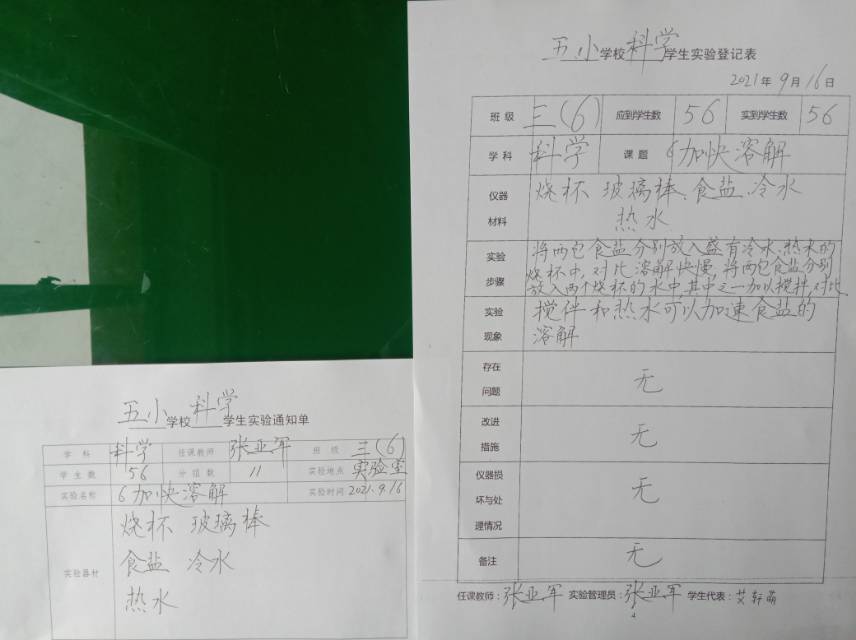 五小学校科学学生实验登记表
2021年9月16日
班级 三(6) 应到学生数 56 实到学生数 56
学科 科学 课题 6加快溶解
仪器材料 烧杯 玻璃棒、食盐、冷水
热水
实验步骤 将两包食盐分别放入盛有冷水、热水的
烧杯中,对比溶解快慢,将两包食盐分别
放入两个烧杯的水中,其中之一加以搅拌,对比
实验现象 搅伴和热水可以加速食盐的
溶解
存在问题 无
改进措施 无
仪器损坏与处理情况 无
备注 无
任课教师:张亚军 实验管理员:张亚军 学生代表:艾轩萌
五小学校科学学生实验通知单
学科 科学 任课教师 张亚军 班级 三(6)
学生数 56 分组数 11 实验地点 实验室
实验名称 6加快溶解 实验时间 2021.9.16
实验器材 烧杯 玻璃棒
食盐 冷水
热水